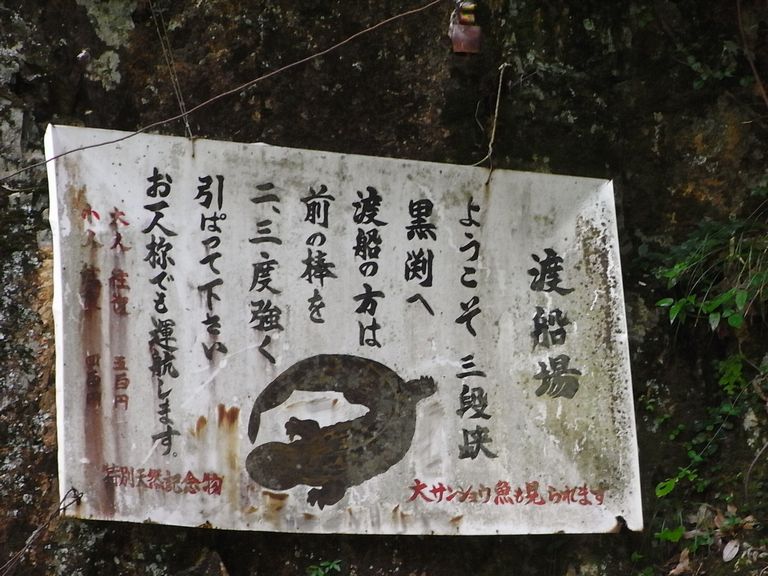 渡船場
ようこそ 三段峡
黒渕へ
渡船の方は
前の棒を
二、三度強く
引ぱって下さい
お一人様でも運航します。
大人 往復 五百円
小人 四百円
特別天然記念物
大サンショウ魚も見られます